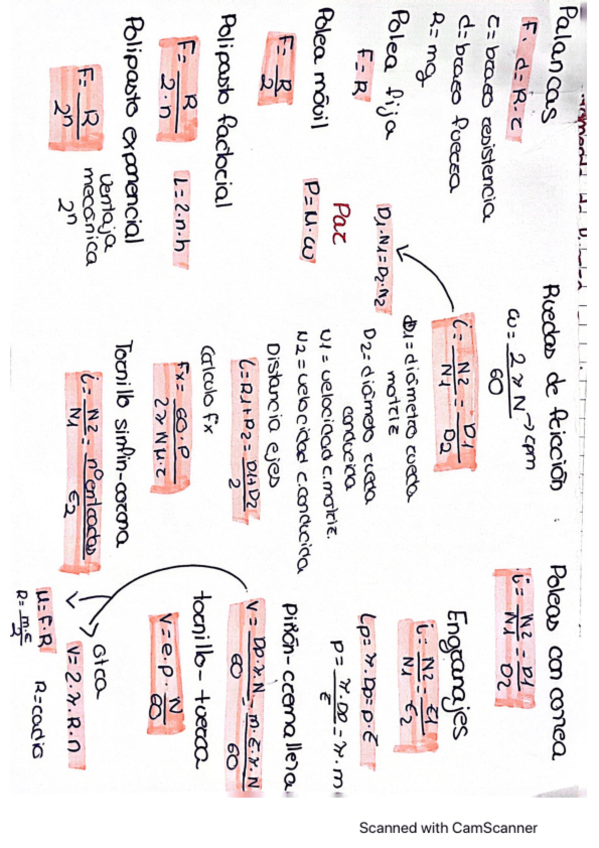 Palancas
F · d = R · r
r = brazo resistencia
d = brazo fuerza
R = mg
Polea fija
F = R
Polea móvil
F = R/2
Polipasto factorial
F = R/2·n
L = 2·n·h
Polipasto exponencial
F = R/2^n
Ventaja
mecánica
2^n
Ruedas de fricción
ω = 2πN/60 → rpm
i = N2/N1 = D1/D2
D1·N1 = D2·N2
Par
P = M·ω
D1 = diámetro rueda
motriz
D2 = diámetro rueda
conducida
N1 = velocidad r. motriz.
N2 = velocidad r. conducida
Distancia ejes
L = R1 + R2 = D1+D2/2
Calculo fx
Fx = 60·P/2πNμ·r
Tornillo sinfín-corona
i = N2/N1 = nº entradas/Z2
Poleas con correa
i = N2/N1 = D1/D2
Engranajes
i = N2/N1 = Z1/Z2
Lp = π·Dp = p·Z
p = π·Dp/Z = π·m
piñón-cremallera
V = Dp·π·N/60 = m·Z·π·N/60
tornillo-tuerca
V = e·p·N/60
otra
V = 2·π·R·n
M = F·R
R = m·Z/2
R = radio
Scanned with CamScanner